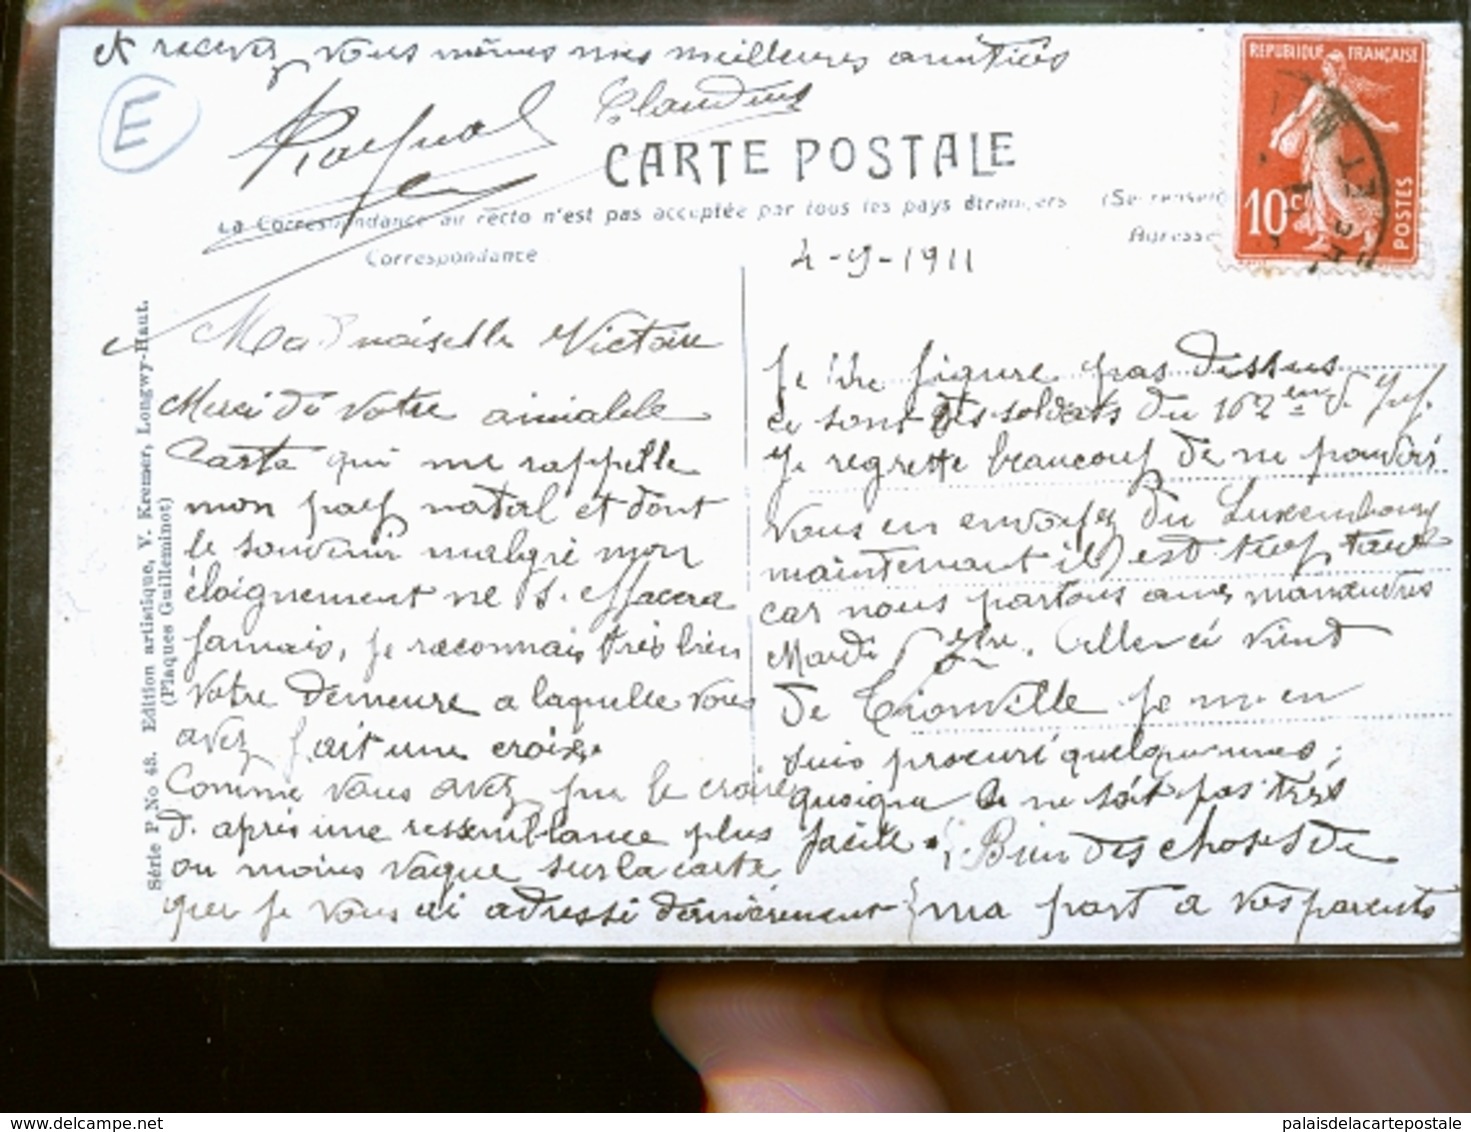 et recevez vous mêmes mes meilleures amitiés
E
Claudius
CARTE POSTALE
La Correspondance au recto n'est pas acceptée par tous les pays étrangers (Se renseig
Correspondance
Adresse
4-9-1911
REPUBLIQUE FRANÇAISE
10c
POSTES
Mademoiselle Victoire
Merci de votre aimable
Carte qui me rappelle
mon pays natal et dont
le souvenir malgré mon
éloignement ne s'effacera
jamais, je reconnais très bien
votre demeure a laquelle vous
avez fait une croix
Comme vous avez pu le croire
d'après une ressemblance plus
ou moins vague sur la carte
que je vous ai adressé dernièrement
Je ne figure pas dessus
ce sont des soldats du 162eme d'Inf.
Je regrette beaucoup de ne pouvoir
vous en envoyez du Luxembourg
maintenant il est trop tard
car nous partons aux manœuvres
Mardi 5 7bre. Celle-ci vient
de Thionville je m'en
suis procuré quelques-unes;
quoique ce ne soit pas très
facile. Bien des choses de
ma part a vos parents
Série P. No 48. Edition artistique, V. Kremer, Longwy-Haut.
(Plaques Guilleminot)
palaisdelacartepostale